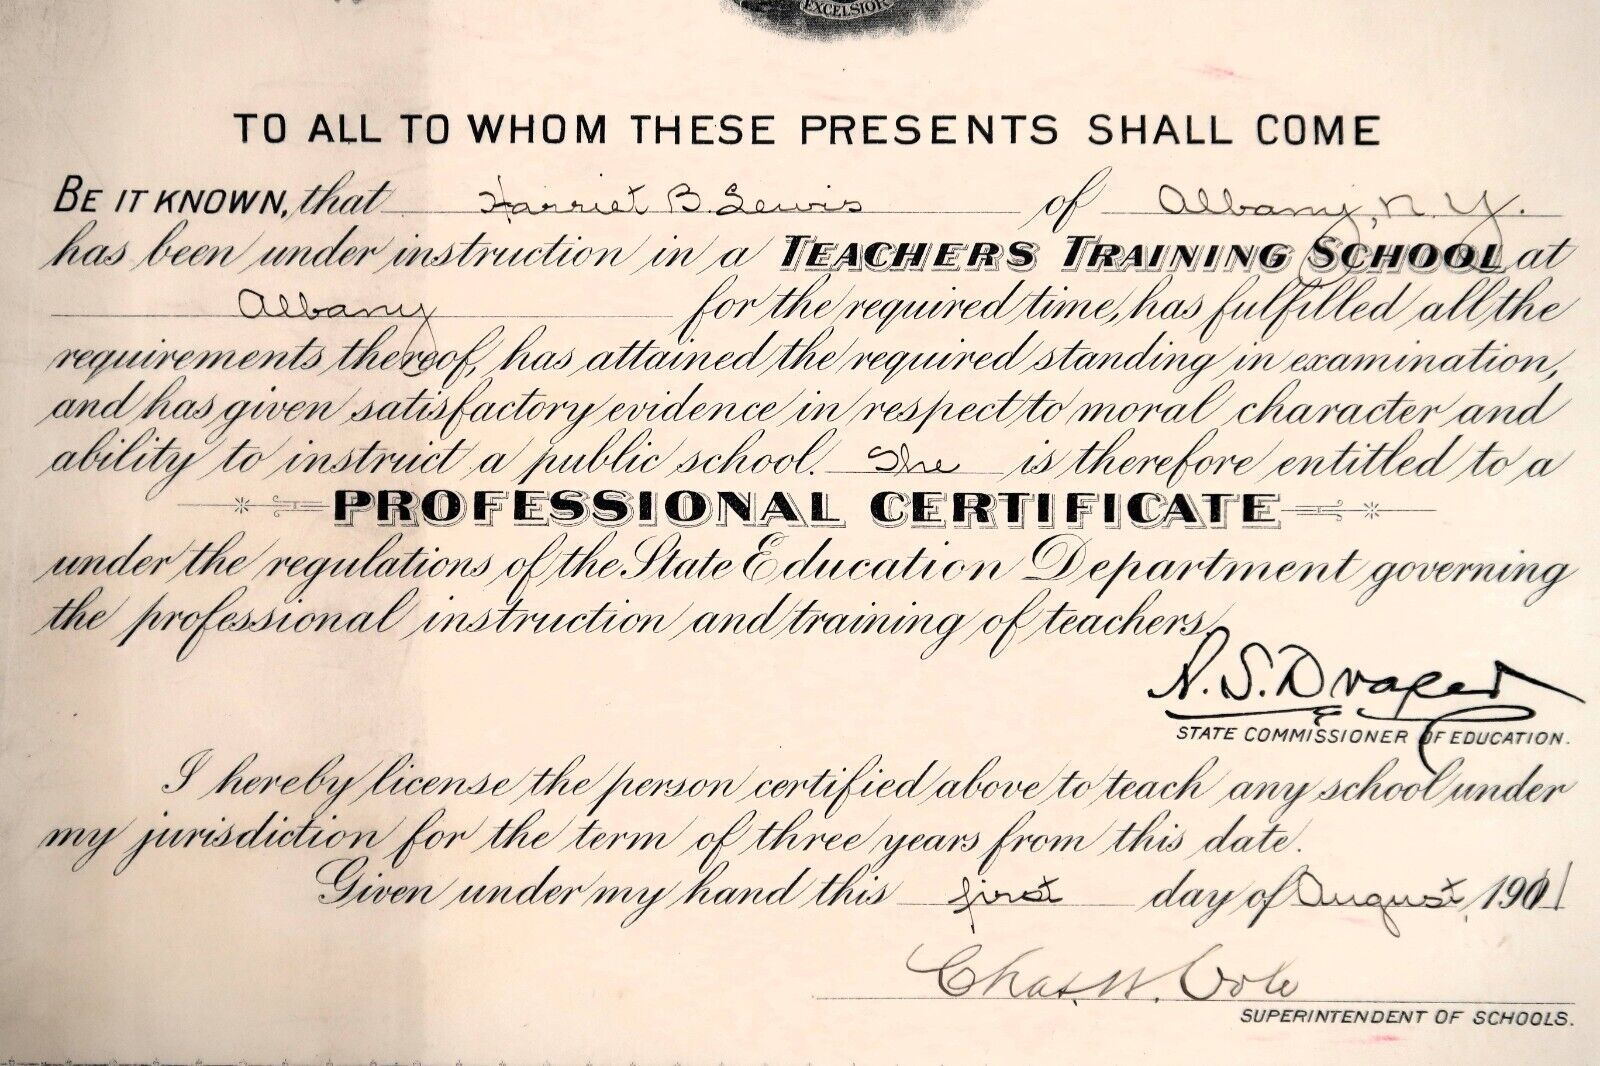 EXCELSIOR
TO ALL TO WHOM THESE PRESENTS SHALL COME
BE IT KNOWN, that Harriet B. Lewis of Albany, N.Y.
has been under instruction in a TEACHERS TRAINING SCHOOL at
Albany for the required time, has fulfilled all the
requirements thereof, has attained the required standing in examination,
and has given satisfactory evidence in respect to moral character and
ability to instruct a public school. She is therefore entitled to a
PROFESSIONAL CERTIFICATE
under the regulations of the State Education Department governing
the professional instruction and training of teachers.
A. S. Draper
STATE COMMISSIONER OF EDUCATION.
I hereby license the person certified above to teach any school under
my jurisdiction for the term of three years from this date.
Given under my hand this first day of August, 1911
Chas. W. Cole
SUPERINTENDENT OF SCHOOLS.